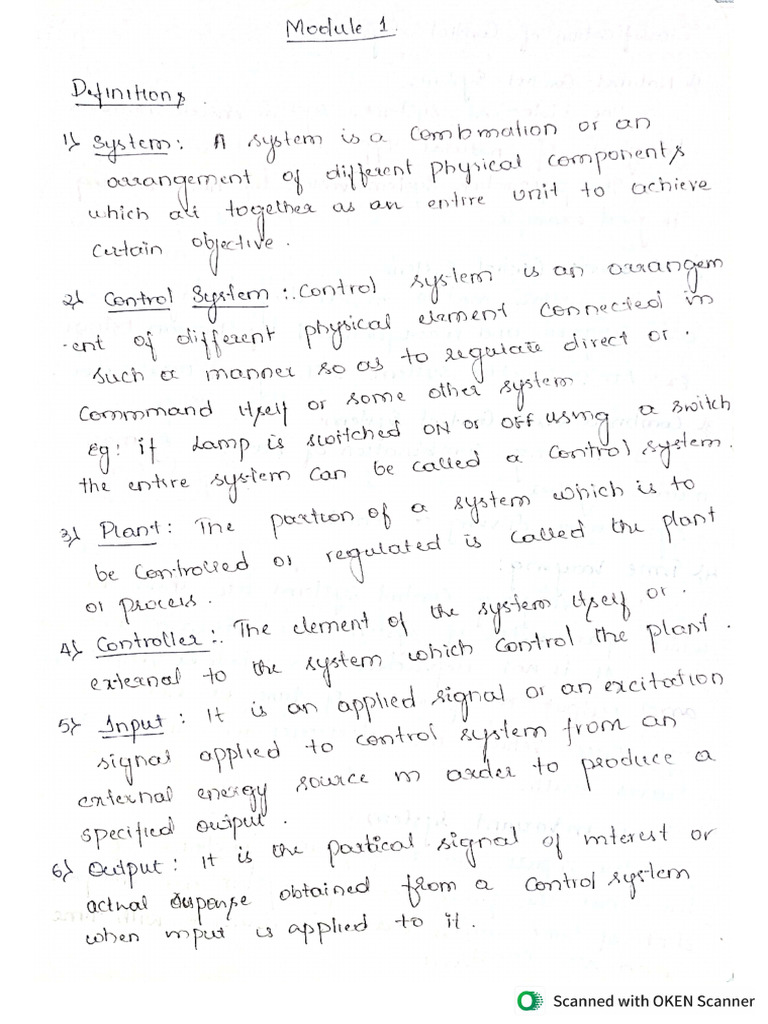 Module 1.
Definitions.
1) System: A system is a combination or an
arrangement of different physical components
which act together as an entire unit to achieve
certain objective.
2) Control System:. Control system is an arrangem
-ent of different physical element connected in
such a manner so as to regulate direct or.
Commmand itself or some other system
Eg: if Lamp is switched ON or OFF using a switch
the entire system can be called a control system.
3) Plant: The portion of a system which is to
be controlled or regulated is called the plant
or process.
4) Controller:. The element of the system itself or.
external to the system which control the plant.
5) Input: It is an applied signal or an excitation
signal applied to control system from an
external energy source in order to produce a
specified output.
6) Output: It is the partical signal of interest or
actual response obtained from a control system
when input is applied to it.
Scanned with OKEN Scanner